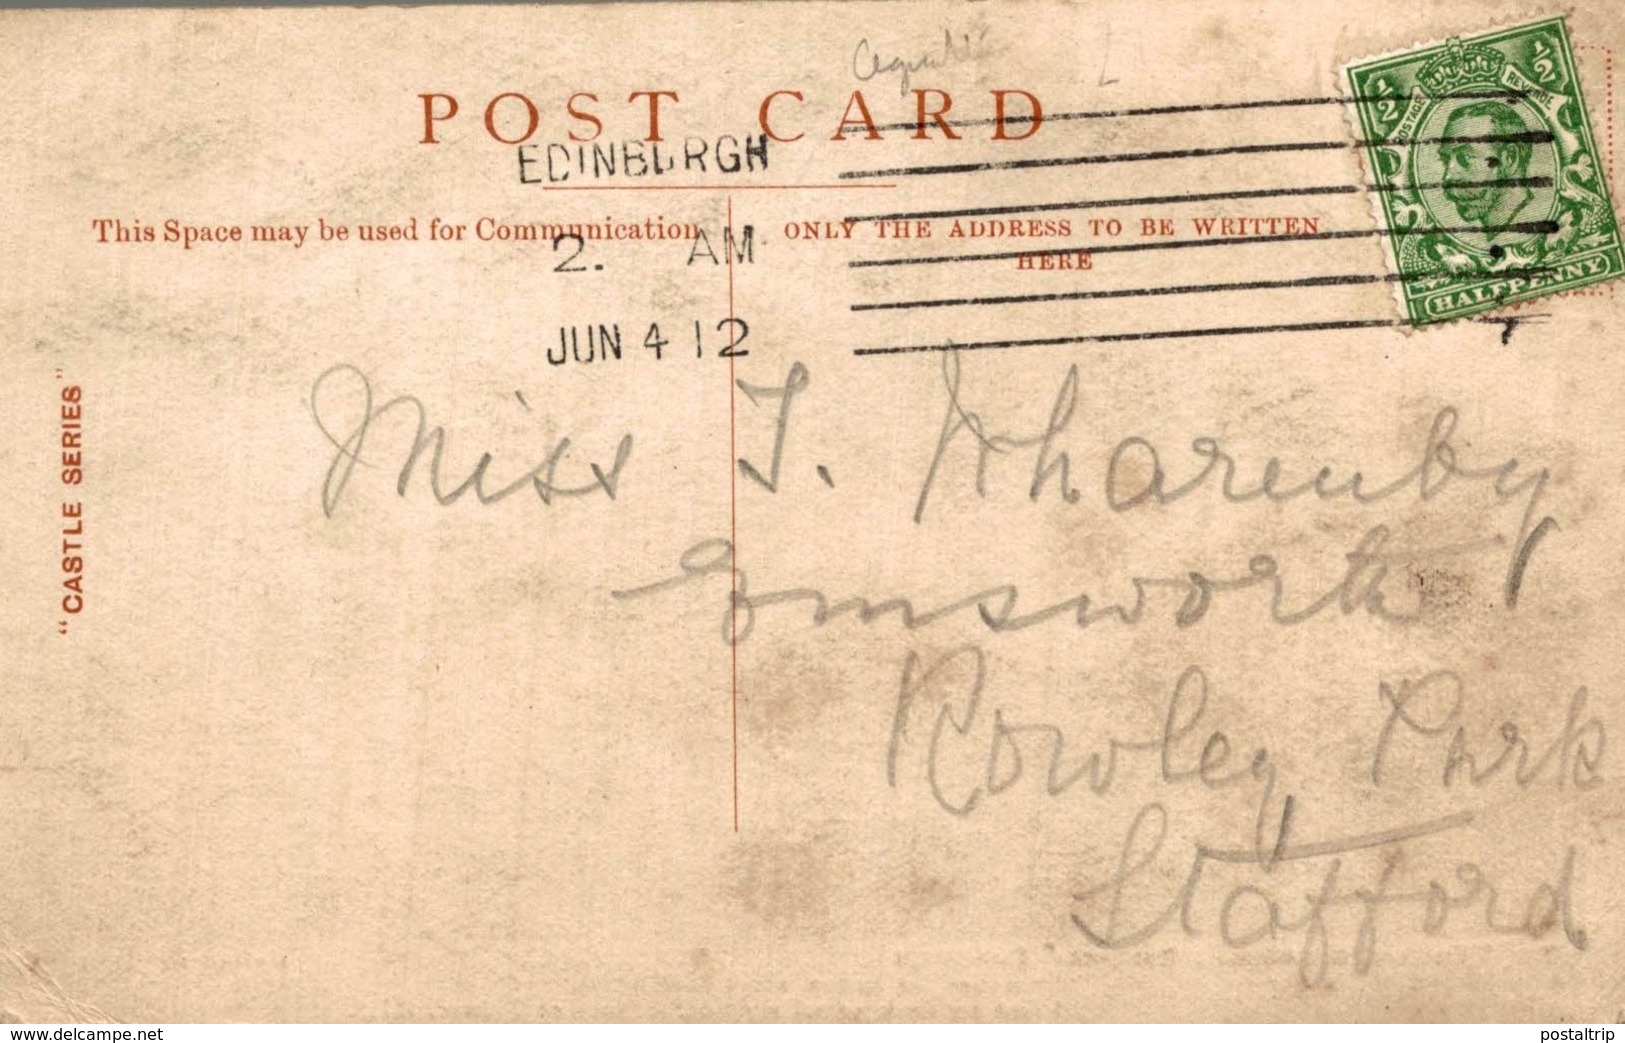 POST CARD
EDINBURGH
This Space may be used for Communication
ONLY THE ADDRESS TO BE WRITTEN
HERE
2. AM
JUN 4 12
"CASTLE SERIES"
½ ½
POSTAGE REVENUE
HALFPENNY
Miss J. Wharenby
Emsworth
Rowley Park
Stafford
delcampe.net
postaltrip